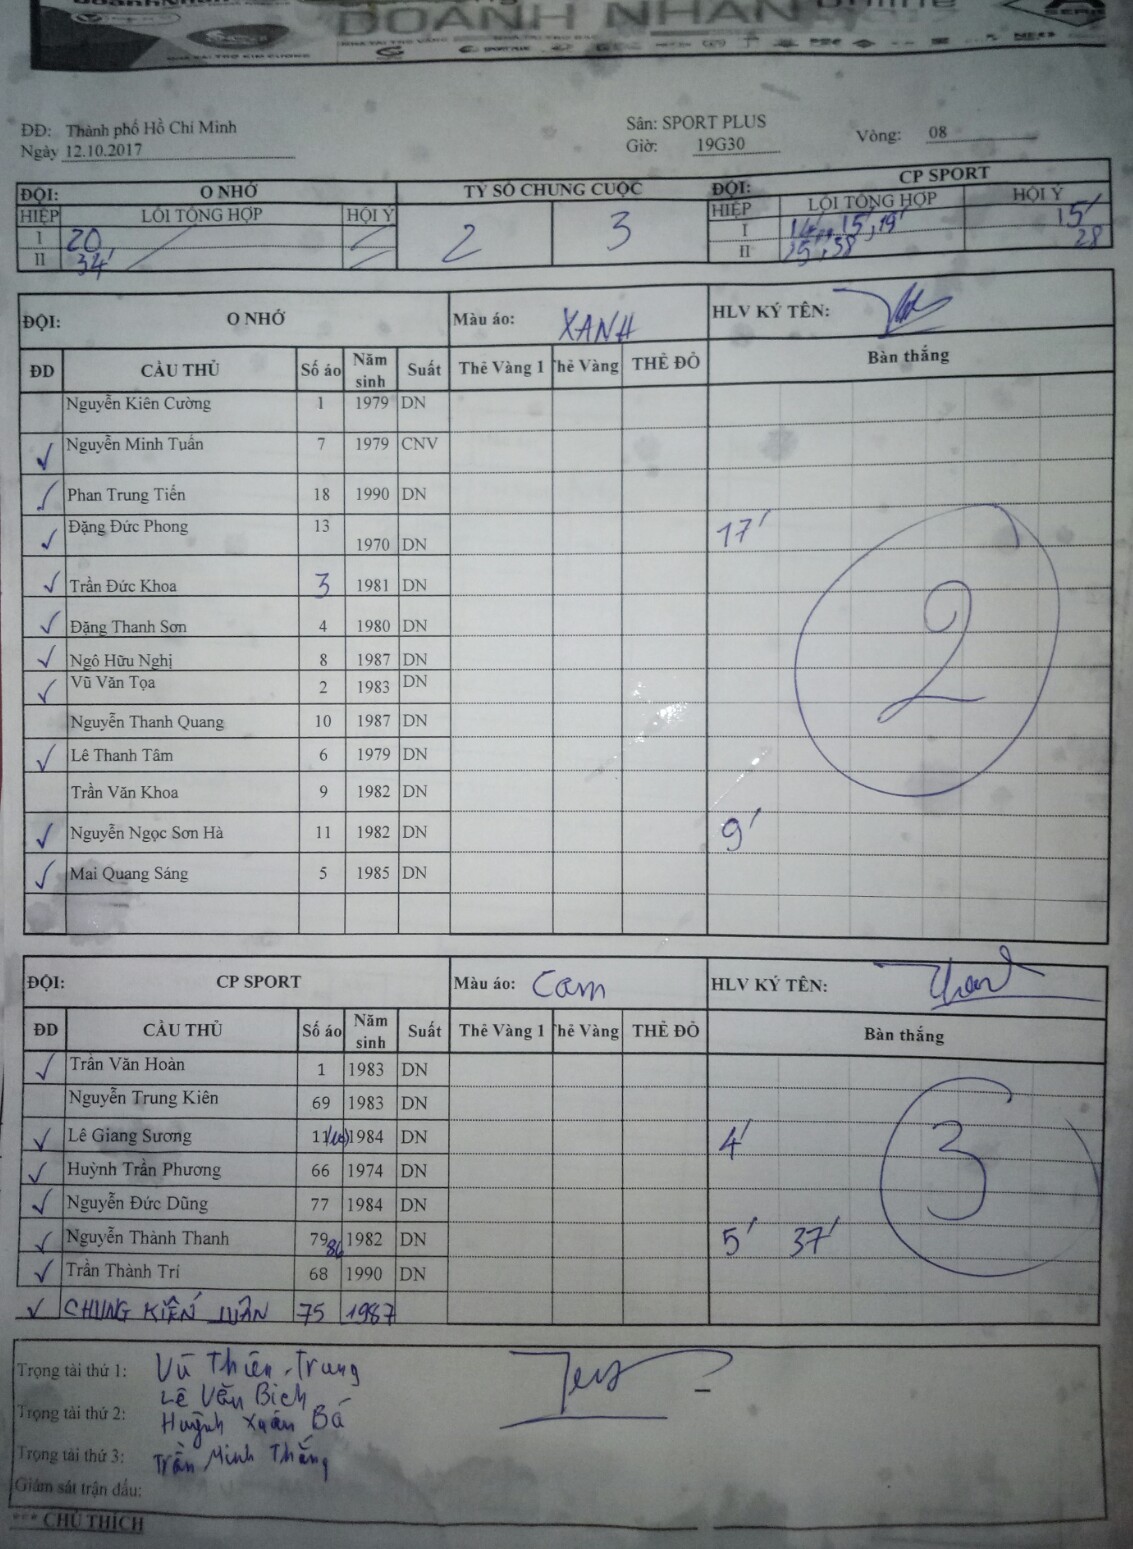 DOANH NHÂN
ĐĐ: Thành phố Hồ Chí Minh
Sân: SPORT PLUS
Ngày 12.10.2017
Giờ: 19G30
Vòng: 08
ĐỘI: O NHỚ TỶ SỐ CHUNG CUỘC ĐỘI: CP SPORT
HIỆP LỖI TỔNG HỢP HỘI Ý 2 3 HIỆP LỖI TỔNG HỢP HỘI Ý
I 20 I 14', 15', 19' 15'
II 34' II 25', 38 28
ĐỘI: O NHỚ Màu áo: XANH HLV KÝ TÊN:
ĐD CẦU THỦ Số áo Năm sinh Suất Thẻ Vàng 1 hẻ Vàng THẺ ĐỎ Bàn thắng
Nguyễn Kiên Cường 1 1979 DN
✓ Nguyễn Minh Tuấn 7 1979 CNV
✓ Phan Trung Tiến 18 1990 DN
✓ Đặng Đức Phong 13 1970 DN 17'
✓ Trần Đức Khoa 3 1981 DN
✓ Đặng Thanh Sơn 4 1980 DN
✓ Ngô Hữu Nghị 8 1987 DN
✓ Vũ Văn Tọa 2 1983 DN
Nguyễn Thanh Quang 10 1987 DN
✓ Lê Thanh Tâm 6 1979 DN
Trần Văn Khoa 9 1982 DN
✓ Nguyễn Ngọc Sơn Hà 11 1982 DN 9'
✓ Mai Quang Sáng 5 1985 DN
2
ĐỘI: CP SPORT Màu áo: Cam HLV KÝ TÊN:
ĐD CẦU THỦ Số áo Năm sinh Suất Thẻ Vàng 1 hẻ Vàng THẺ ĐỎ Bàn thắng
✓ Trần Văn Hoàn 1 1983 DN
Nguyễn Trung Kiên 69 1983 DN
✓ Lê Giang Sương 11 1984 DN 4'
✓ Huỳnh Trần Phương 66 1974 DN
✓ Nguyễn Đức Dũng 77 1984 DN
✓ Nguyễn Thành Thanh 79 86 1982 DN 5' 37'
✓ Trần Thành Trí 68 1990 DN
✓ CHUNG KIẾN 75 1987
3
Trọng tài thứ 1: Vũ Thiên Trung
Lê Văn Bich
Trọng tài thứ 2: Huỳnh Xuân Bá
Trọng tài thứ 3: Trần Minh Thắng
Giám sát trận đấu:
*** CHÚ THÍCH